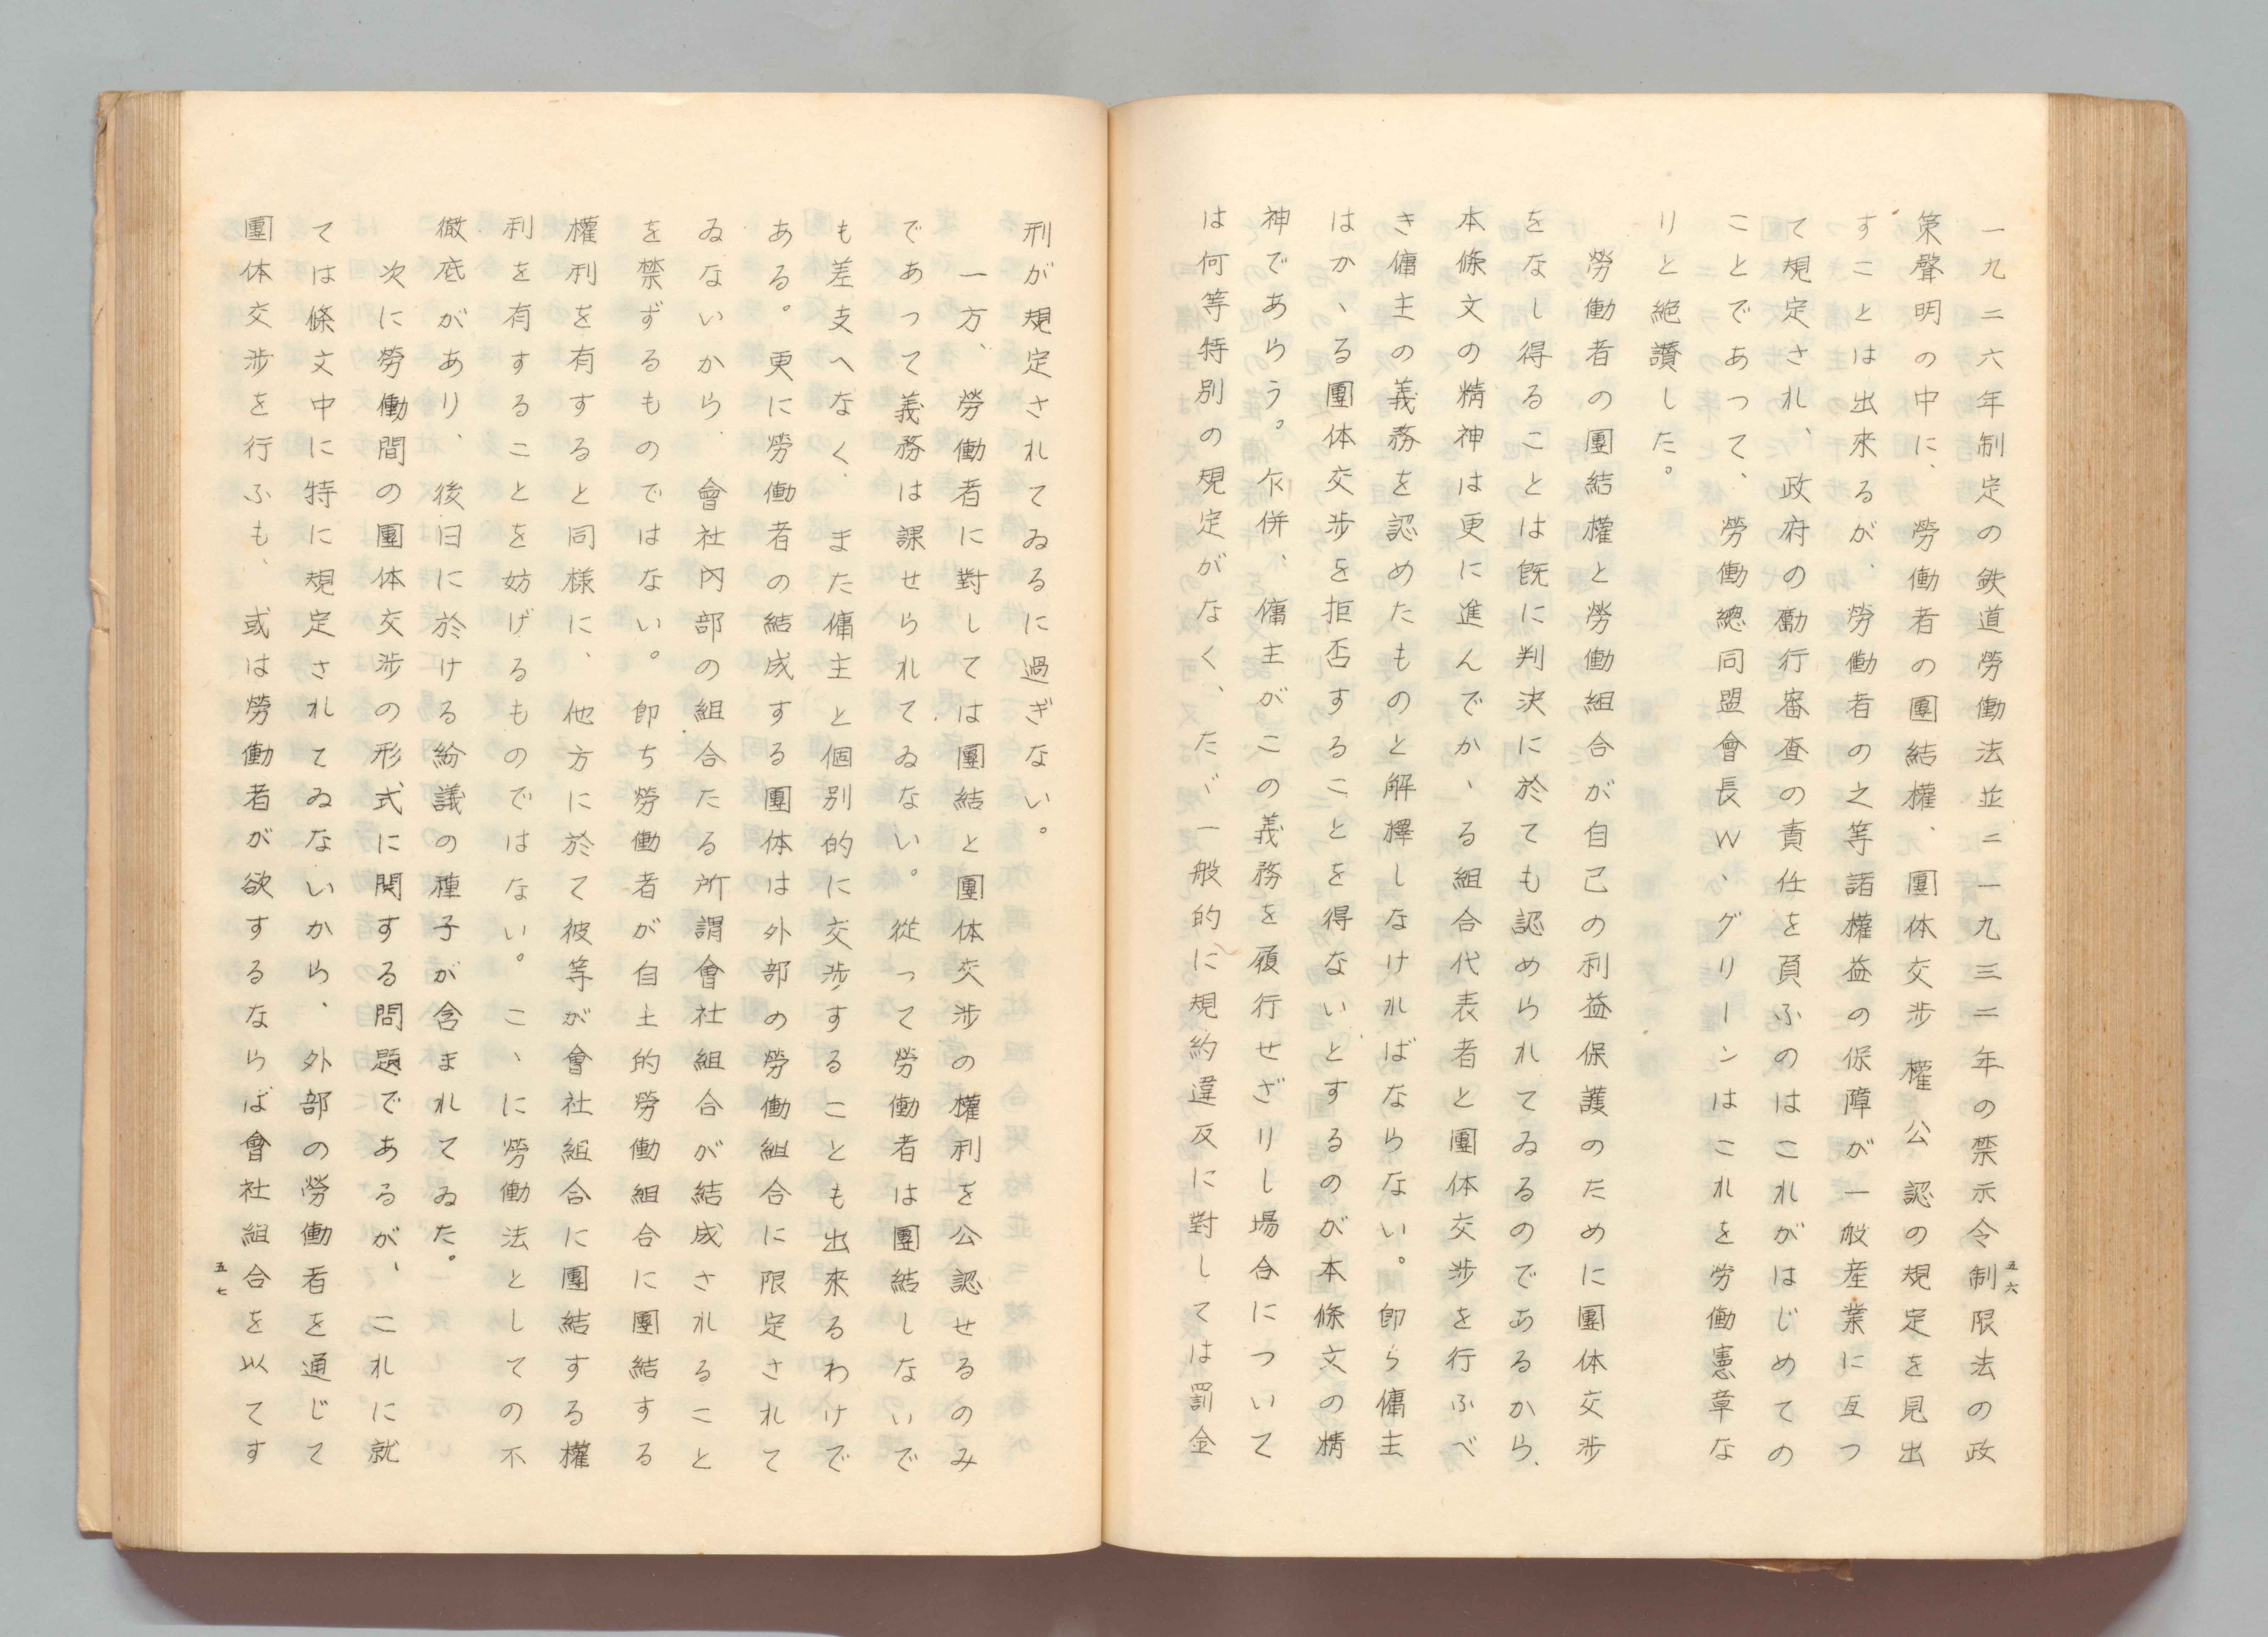 一九二六年制定の鉄道勞働法並ニ一九三二年の禁示令制限法の政
策聲明の中に、勞働者の團結權、團体交渉權公認の規定を見出
すことは出來るが、勞働者の之等諸權益の保障が一般産業に亙つ
て規定され、政府の勵行審査の責任を負ふのはこれがはじめての
ことであつて、勞働總同盟會長W、グリーンはこれを労働憲章な
りと絶讚した。
勞働者の團結權と勞働組合が自己の利益保護のために團体交渉
をなし得ることは既に判決に於ても認められてゐるのであるから、
本條文の精神は更に進んでかゝる組合代表者と團体交渉を行ふべ
き傭主の義務を認めたものと解擇しなければならない。即ち傭主
はかゝる團体交渉を拒否することを得ないとするのが本條文の精
神であらう。乍併、傭主がこの義務を履行せざりし場合について
は何等特別の規定がなく、たゞ一般的に規約違反に對しては罰金
五六
刑が規定されてゐるに過ぎない。
一方、勞働者に對しては團結と團体交渉の權利を公認せるのみ
であつて義務は課せられてゐない。從つて勞働者は團結しないで
も差支へなく、また傭主と個別的に交渉することも出來るわけで
ある。更に勞働者の結成する團体は外部の勞働組合に限定されて
ゐないから、會社内部の組合たる所謂會社組合が結成されること
を禁ずるものではない。即ち勞働者が自主的勞働組合に團結する
權利を有すると同樣に、他方に於て彼等が會社組合に團結する權
利を有することを妨げるものではない。こゝに勞働法としての不
徹底があり、後日に於ける紛議の種子が含まれてゐた。
次に勞働間の團体交渉の形式に関する問題であるが、これに就
ては條文中に特に規定されてゐないから、外部の勞働者を通じて
團体交渉を行ふも、或は勞働者が欲するならば會社組合を以てす
五七